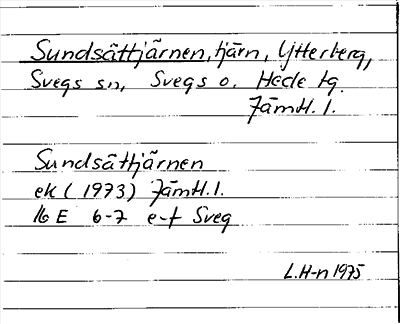 Sundsåttjärnen, tjärn, Ytterberg,
Svegs sn, Svegs o. Hede tg.
Jämtl. l.
Sundsåttjärnen
ek (1973) Jämtl. l.
16 E 6-7 e-f Sveg
L.H-n 1975